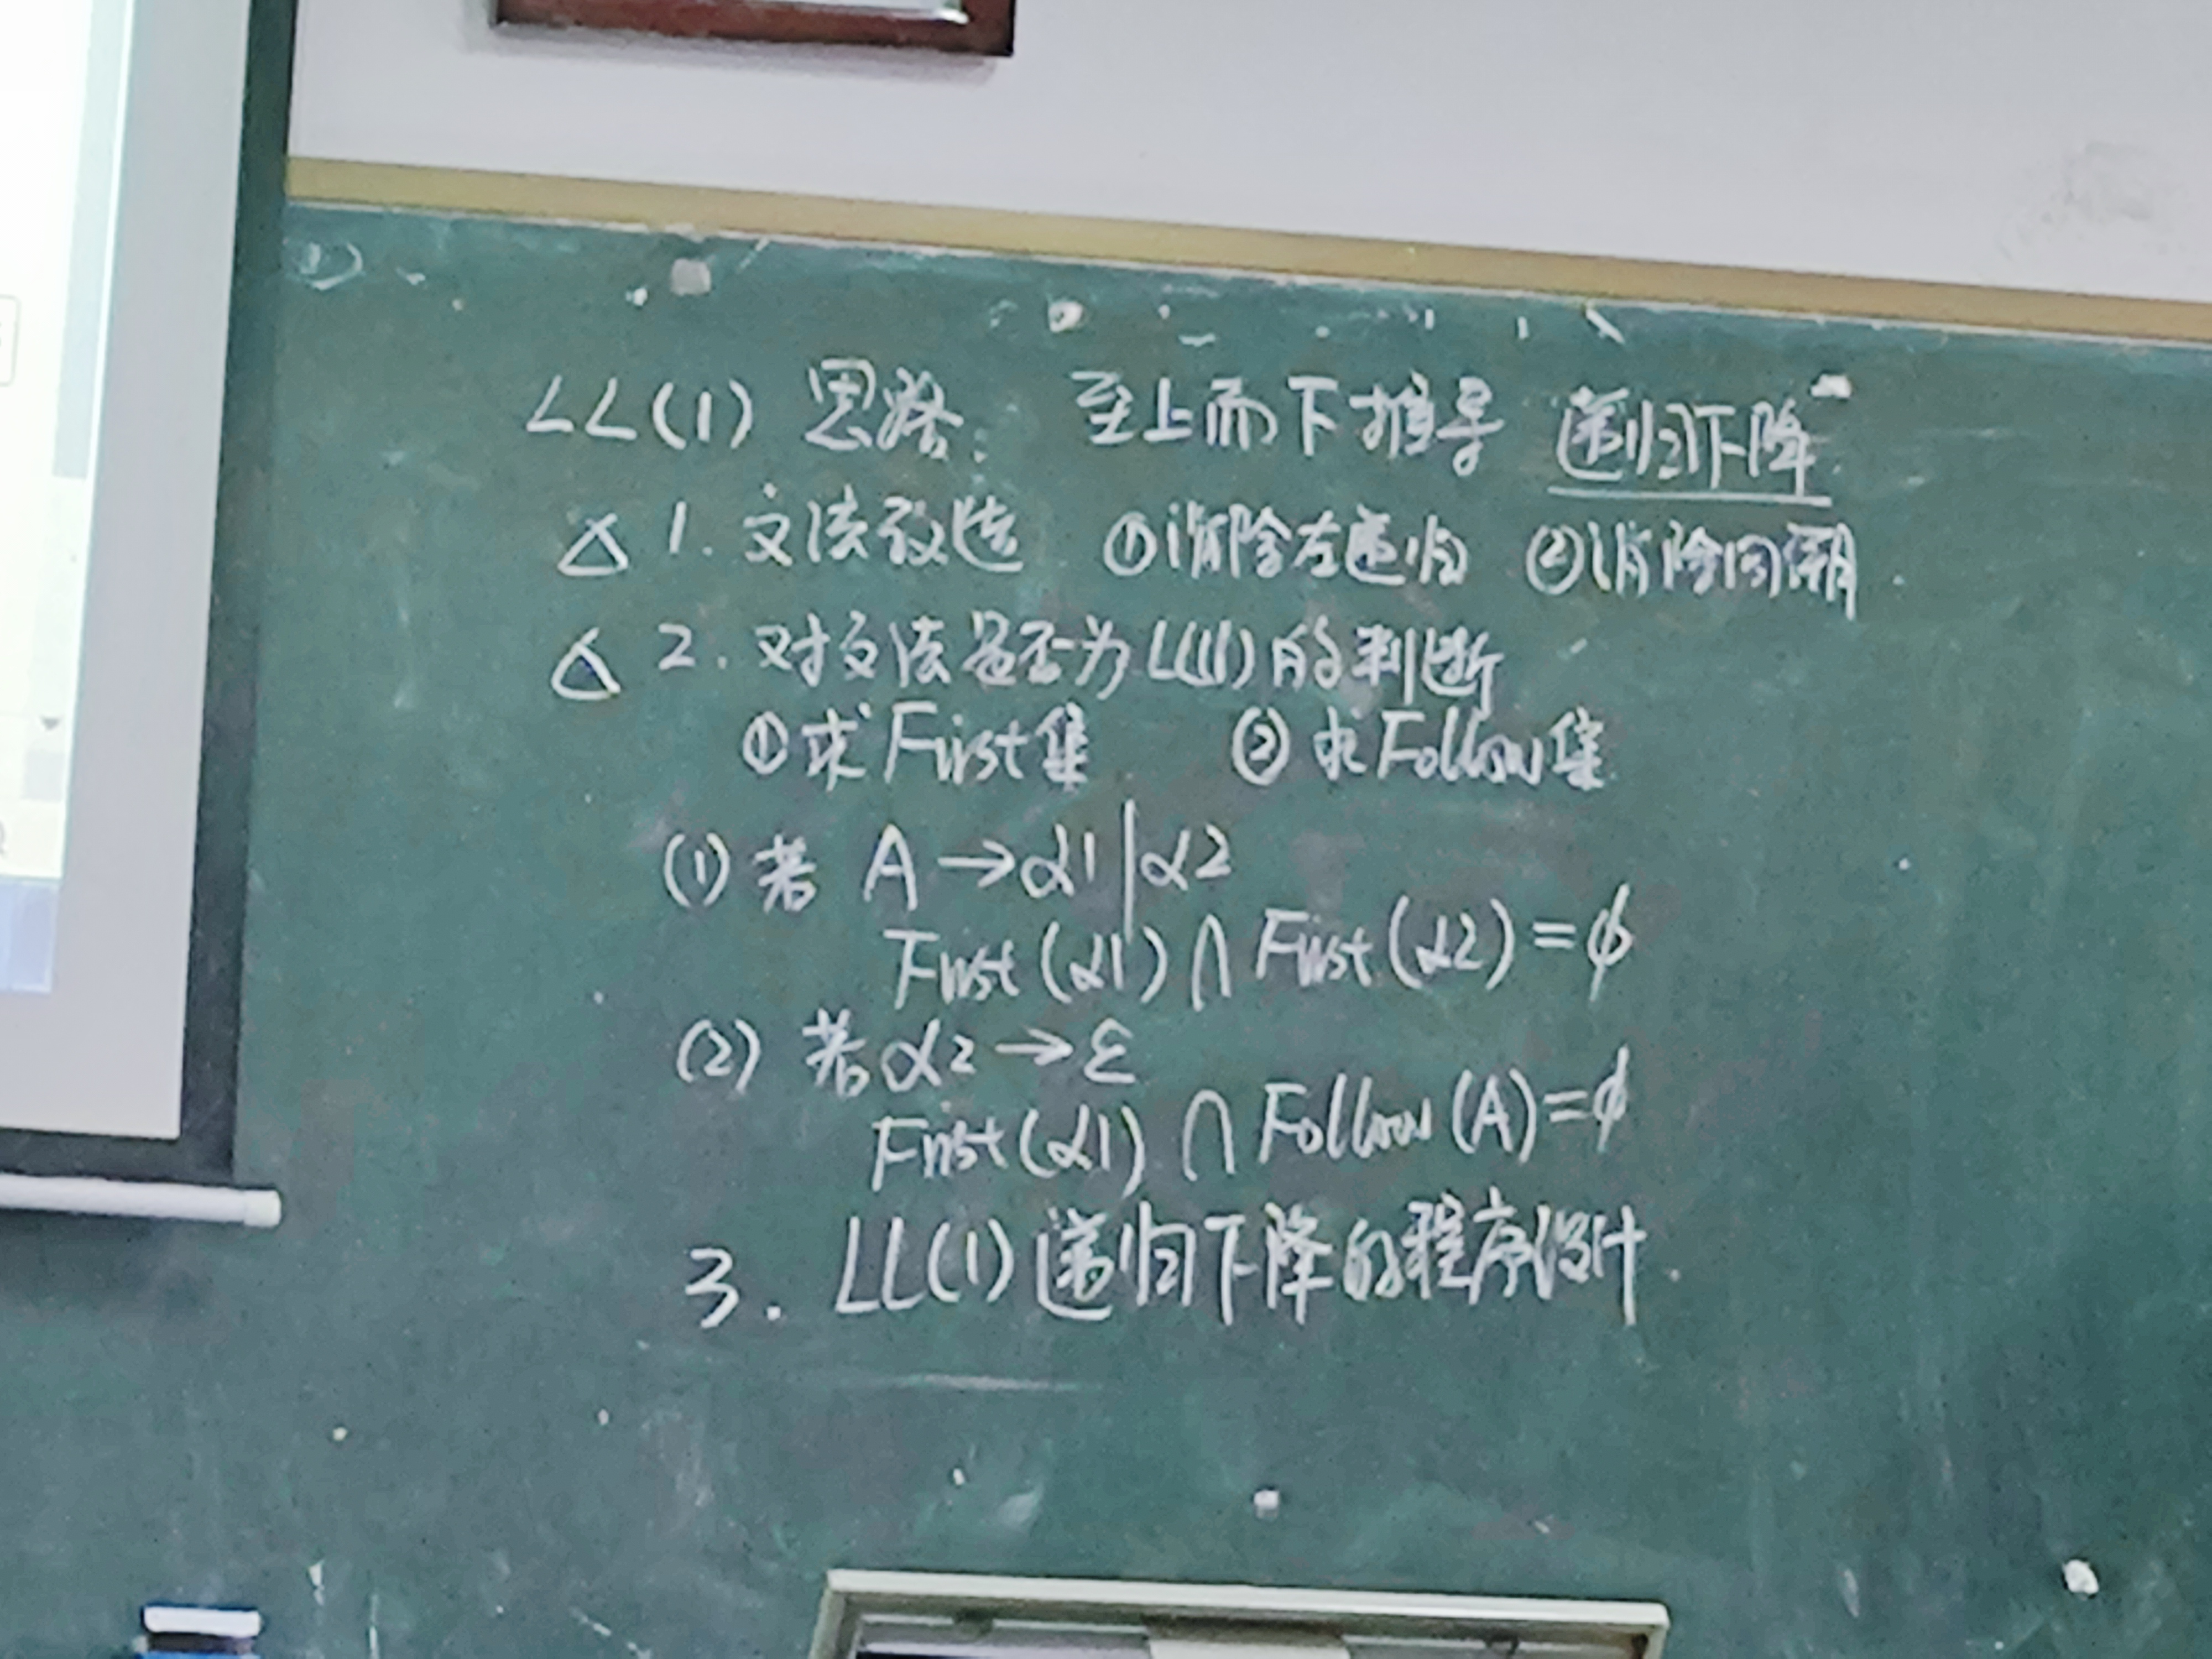 LL(1) 思路: 至上而下推导 递归下降
△ 1. 文法改造 ①消除左递归 ②消除回溯
△ 2. 对文法是否为LL(1)的判断
①求First集 ②求Follow集
(1) 若 A→α1|α2
First(α1)∩First(α2)=φ
(2) 若α2→ε
First(α1)∩Follow(A)=φ
3. LL(1)递归下降的程序设计.